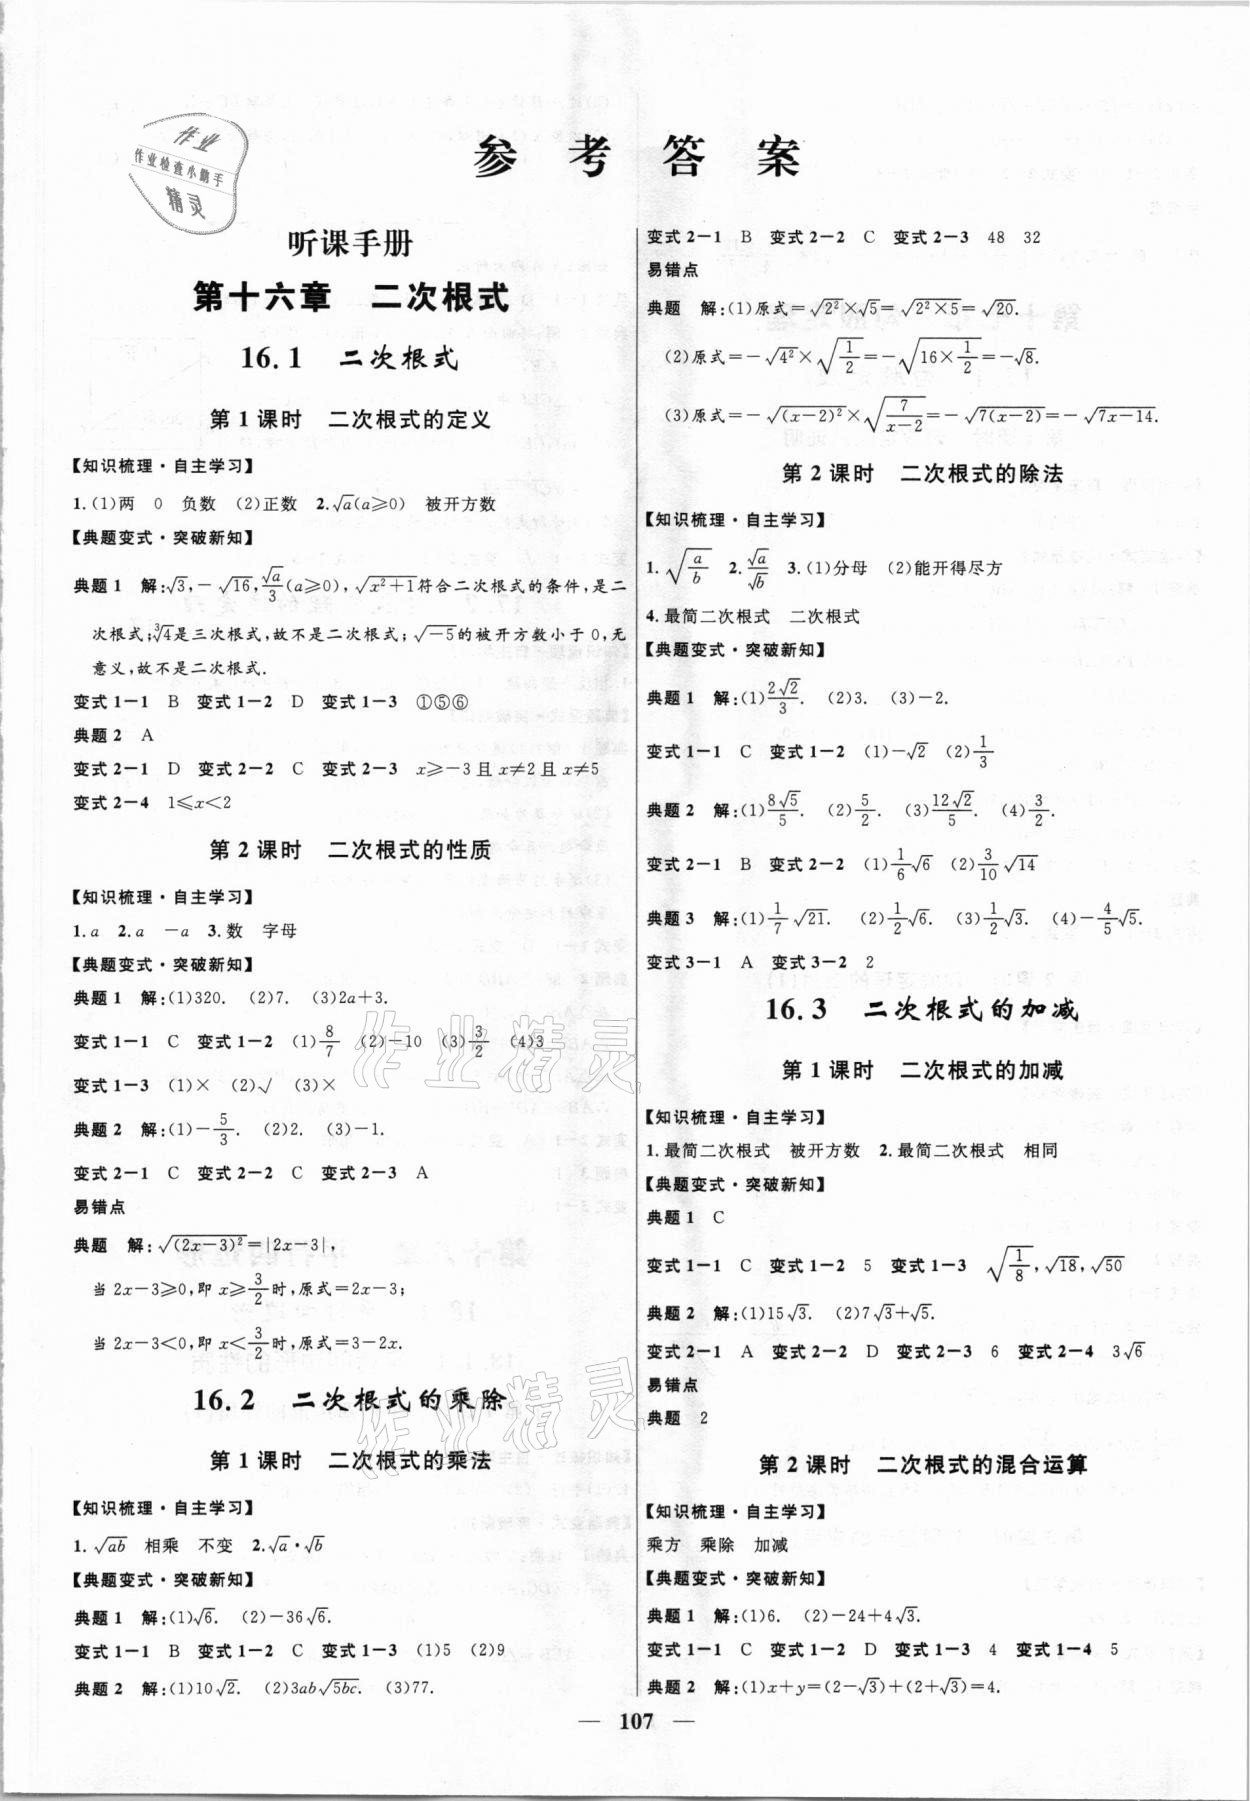 参考答案
作业
作业检查小助手
精灵
听课手册
第十六章 二次根式
16.1 二次根式
第1课时 二次根式的定义
【知识梳理·自主学习】
1.(1)两 0 负数 (2)正数 2.√a(a≥0) 被开方数
【典题变式·突破新知】
典题1 解:√3,-√16,√a/3(a≥0),√(x²+1)符合二次根式的条件,是二
次根式;³√4是三次根式,故不是二次根式;√-5的被开方数小于0,无
意义,故不是二次根式.
变式1-1 B 变式1-2 D 变式1-3 ①⑤⑥
典题2 A
变式2-1 D 变式2-2 C 变式2-3 x≥-3且x≠2且x≠5
变式2-4 1≤x<2
第2课时 二次根式的性质
【知识梳理·自主学习】
1.a 2.a -a 3.数 字母
【典题变式·突破新知】
典题1 解:(1)320. (2)7. (3)2a+3.
变式1-1 C 变式1-2 (1)8/7 (2)-10 (3)3/2 (4)3
变式1-3 (1)× (2)√ (3)×
典题2 解:(1)-5/3. (2)2. (3)-1.
变式2-1 C 变式2-2 C 变式2-3 A
易错点
典题 解:√(2x-3)²=|2x-3|,
当2x-3≥0,即x≥3/2时,原式=2x-3;
当2x-3<0,即x<3/2时,原式=3-2x.
16.2 二次根式的乘除
第1课时 二次根式的乘法
【知识梳理·自主学习】
1.√ab 相乘 不变 2.√a·√b
【典题变式·突破新知】
典题1 解:(1)√6. (2)-36√6.
变式1-1 B 变式1-2 C 变式1-3 (1)5 (2)9
典题2 解:(1)10√2. (2)3ab√5bc. (3)77.
变式2-1 B 变式2-2 C 变式2-3 48 32
易错点
典题 解:(1)原式=√2²×√5=√(2²×5)=√20.
(2)原式=-√4²×√(1/2)=-√(16×1/2)=-√8.
(3)原式=-√(x-2)²×√(7/(x-2))=-√7(x-2)=-√(7x-14).
第2课时 二次根式的除法
【知识梳理·自主学习】
1.√(a/b) 2.√a/√b 3.(1)分母 (2)能开得尽方
4.最简二次根式 二次根式
【典题变式·突破新知】
典题1 解:(1)2√2/3. (2)3. (3)-2.
变式1-1 C 变式1-2 (1)-√2 (2)1/3
典题2 解:(1)8√5/5. (2)5/2. (3)12√2/5. (4)3/2.
变式2-1 B 变式2-2 (1)1/6√6 (2)3/10√14
典题3 解:(1)1/7√21. (2)1/2√6. (3)1/2√3. (4)-4/5√5.
变式3-1 A 变式3-2 2
16.3 二次根式的加减
第1课时 二次根式的加减
【知识梳理·自主学习】
1.最简二次根式 被开方数 2.最简二次根式 相同
【典题变式·突破新知】
典题1 C
变式1-1 C 变式1-2 5 变式1-3 √(1/8),√18,√50
典题2 解:(1)15√3. (2)7√3+√5.
变式2-1 A 变式2-2 D 变式2-3 6 变式2-4 3√6
易错点
典题 2
第2课时 二次根式的混合运算
【知识梳理·自主学习】
乘方 乘除 加减
【典题变式·突破新知】
典题1 解:(1)6. (2)-24+4√3.
变式1-1 C 变式1-2 D 变式1-3 4 变式1-4 5
典题2 解:(1)x+y=(2-√3)+(2+√3)=4.
作业精灵
作业精灵
— 107 —